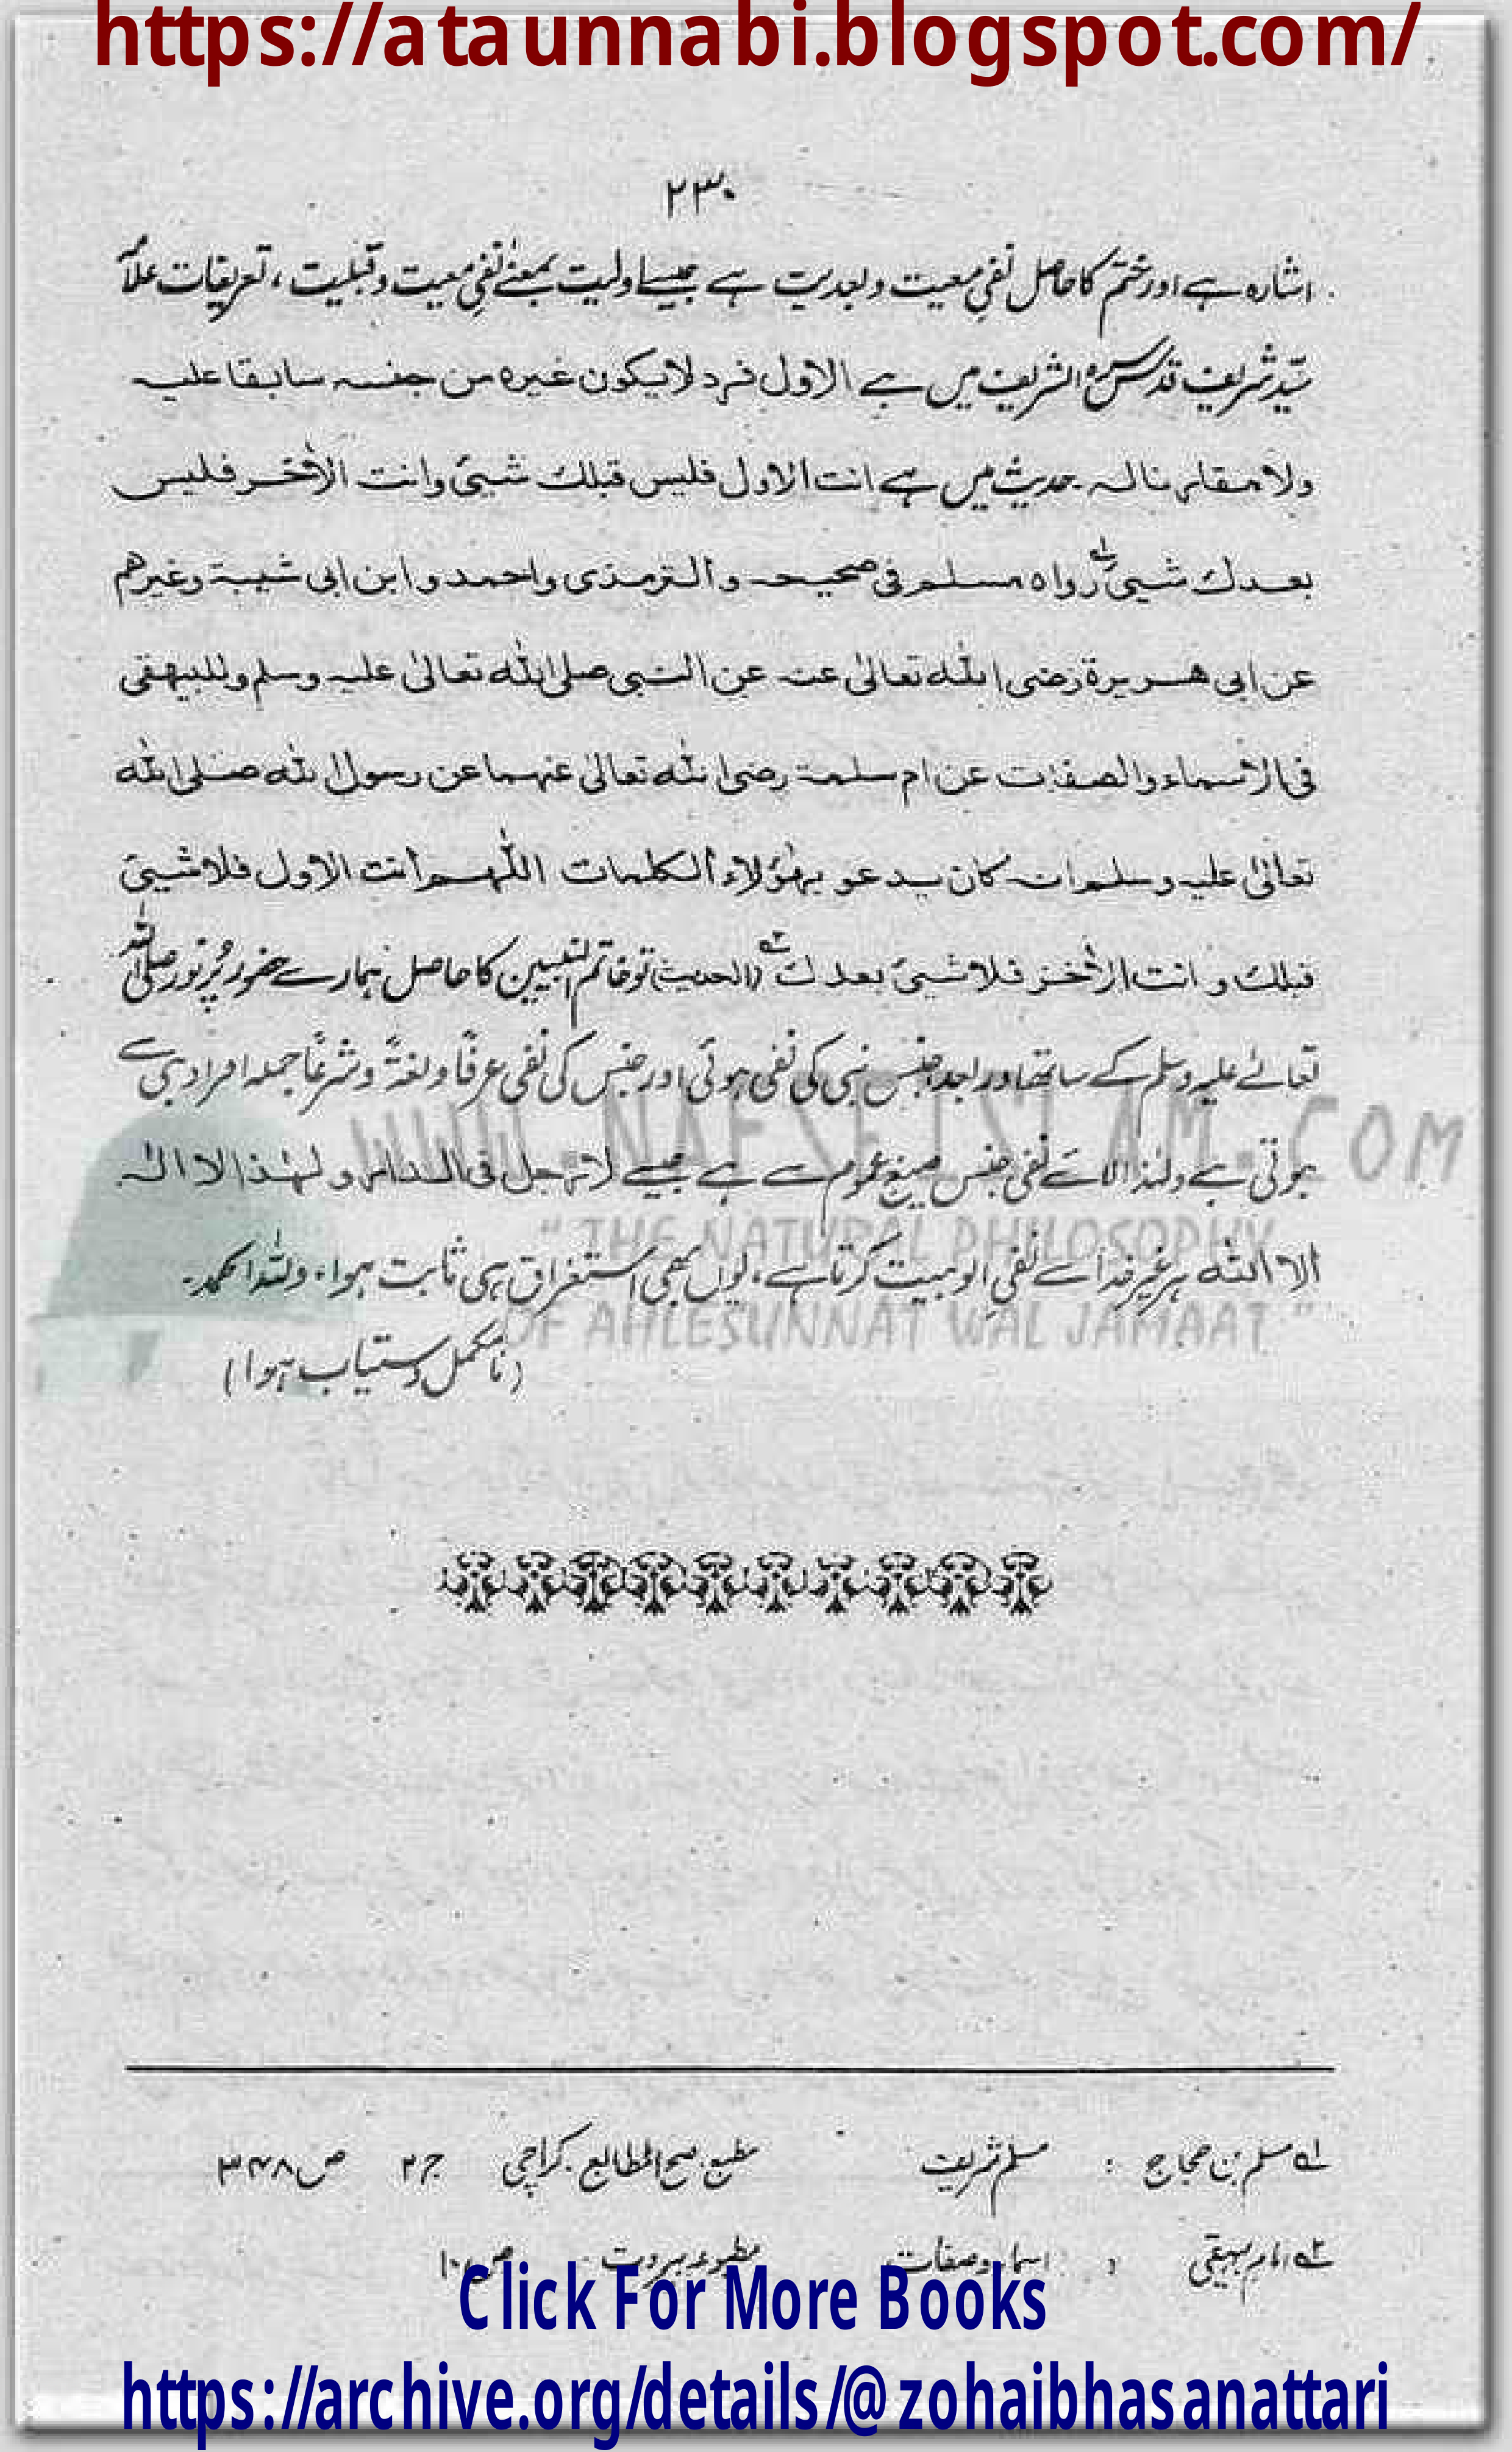 https://ataunnabi.blogspot.com/
۲۳۰
اشارہ ہے اور ختم کا حاصل نفیِ معیت و بعدیت ہے جیسے اولیت بمعنےٰ نفیِ معیت و قبلیت ، تعریفات علامہ
سیّد شریف قدس سرہ الشریف میں ہے الاول فرد لا یکون غیرہ من جنسہ سابقا علیہ
ولا مقارنا لہ ۔ حدیث میں ہے انت الاول فلیس قبلك شیئ وانت الأخر فلیس
بعدك شیئ؂۱ رواہ مسلم فی صحیحہ والترمذی واحمد وابن ابی شیبۃ وغیرھم
عن ابی ھریرۃ رضی اللہ تعالیٰ عنہ عن النبی صلی اللہ تعالیٰ علیہ وسلم وللبیھقی
فی الاسماء والصفات عن ام سلمۃ رضی اللہ تعالیٰ عنہما عن رسول اللہ صلی اللہ
تعالیٰ علیہ وسلم انہ کان یدعو بہٰؤلاء الکلمات اللّٰہم انت الاول فلا شیئ
قبلك وانت الأخر فلا شیئ بعدك؂۲ (الحدیث) تو خاتم النبیین کا حاصل ہمارے حضور پُر نور صلی اللہ
تعالٰے علیہ وسلم کے ساتھ اور بعد جنسِ نبی کی نفی ہوئی اور جنس کی نفی عرفًا و لغۃً و شرعًا جملہ افراد ہی سے
ہوتی ہے ولہٰذا لائے نفی جنس صیغِ عموم سے ہے جیسے لا رجل فی الدار ولہٰذا لا الٰہ
الا اللہ ہر غیرِ خدا سے نفیِ الوہیت کرتا ہے ، یوں بھی استغراق ہی ثابت ہوا ، وللہ الحمد ۔
(نامکمل دستیاب ہوا)
WWW.NAFSEISLAM.COM
" THE NATURAL PHILOSOPHY
OF AHLESUNNAT WAL JAMAAT "
؂۱ مسلم بن حجاج : مسلم شریف مطبع اصح المطابع کراچی ج ۲ ص ۳۴۸
؂۲ امام بیہقی : اسماء وصفات مطبوعہ بیروت ص ۱۰
Click For More Books
https://archive.org/details/@zohaibhasanattari